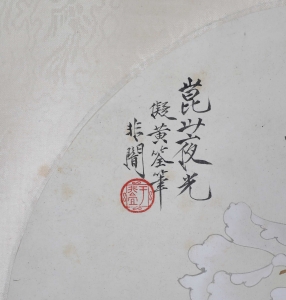 崑山夜光
擬黃筌筆
非闇